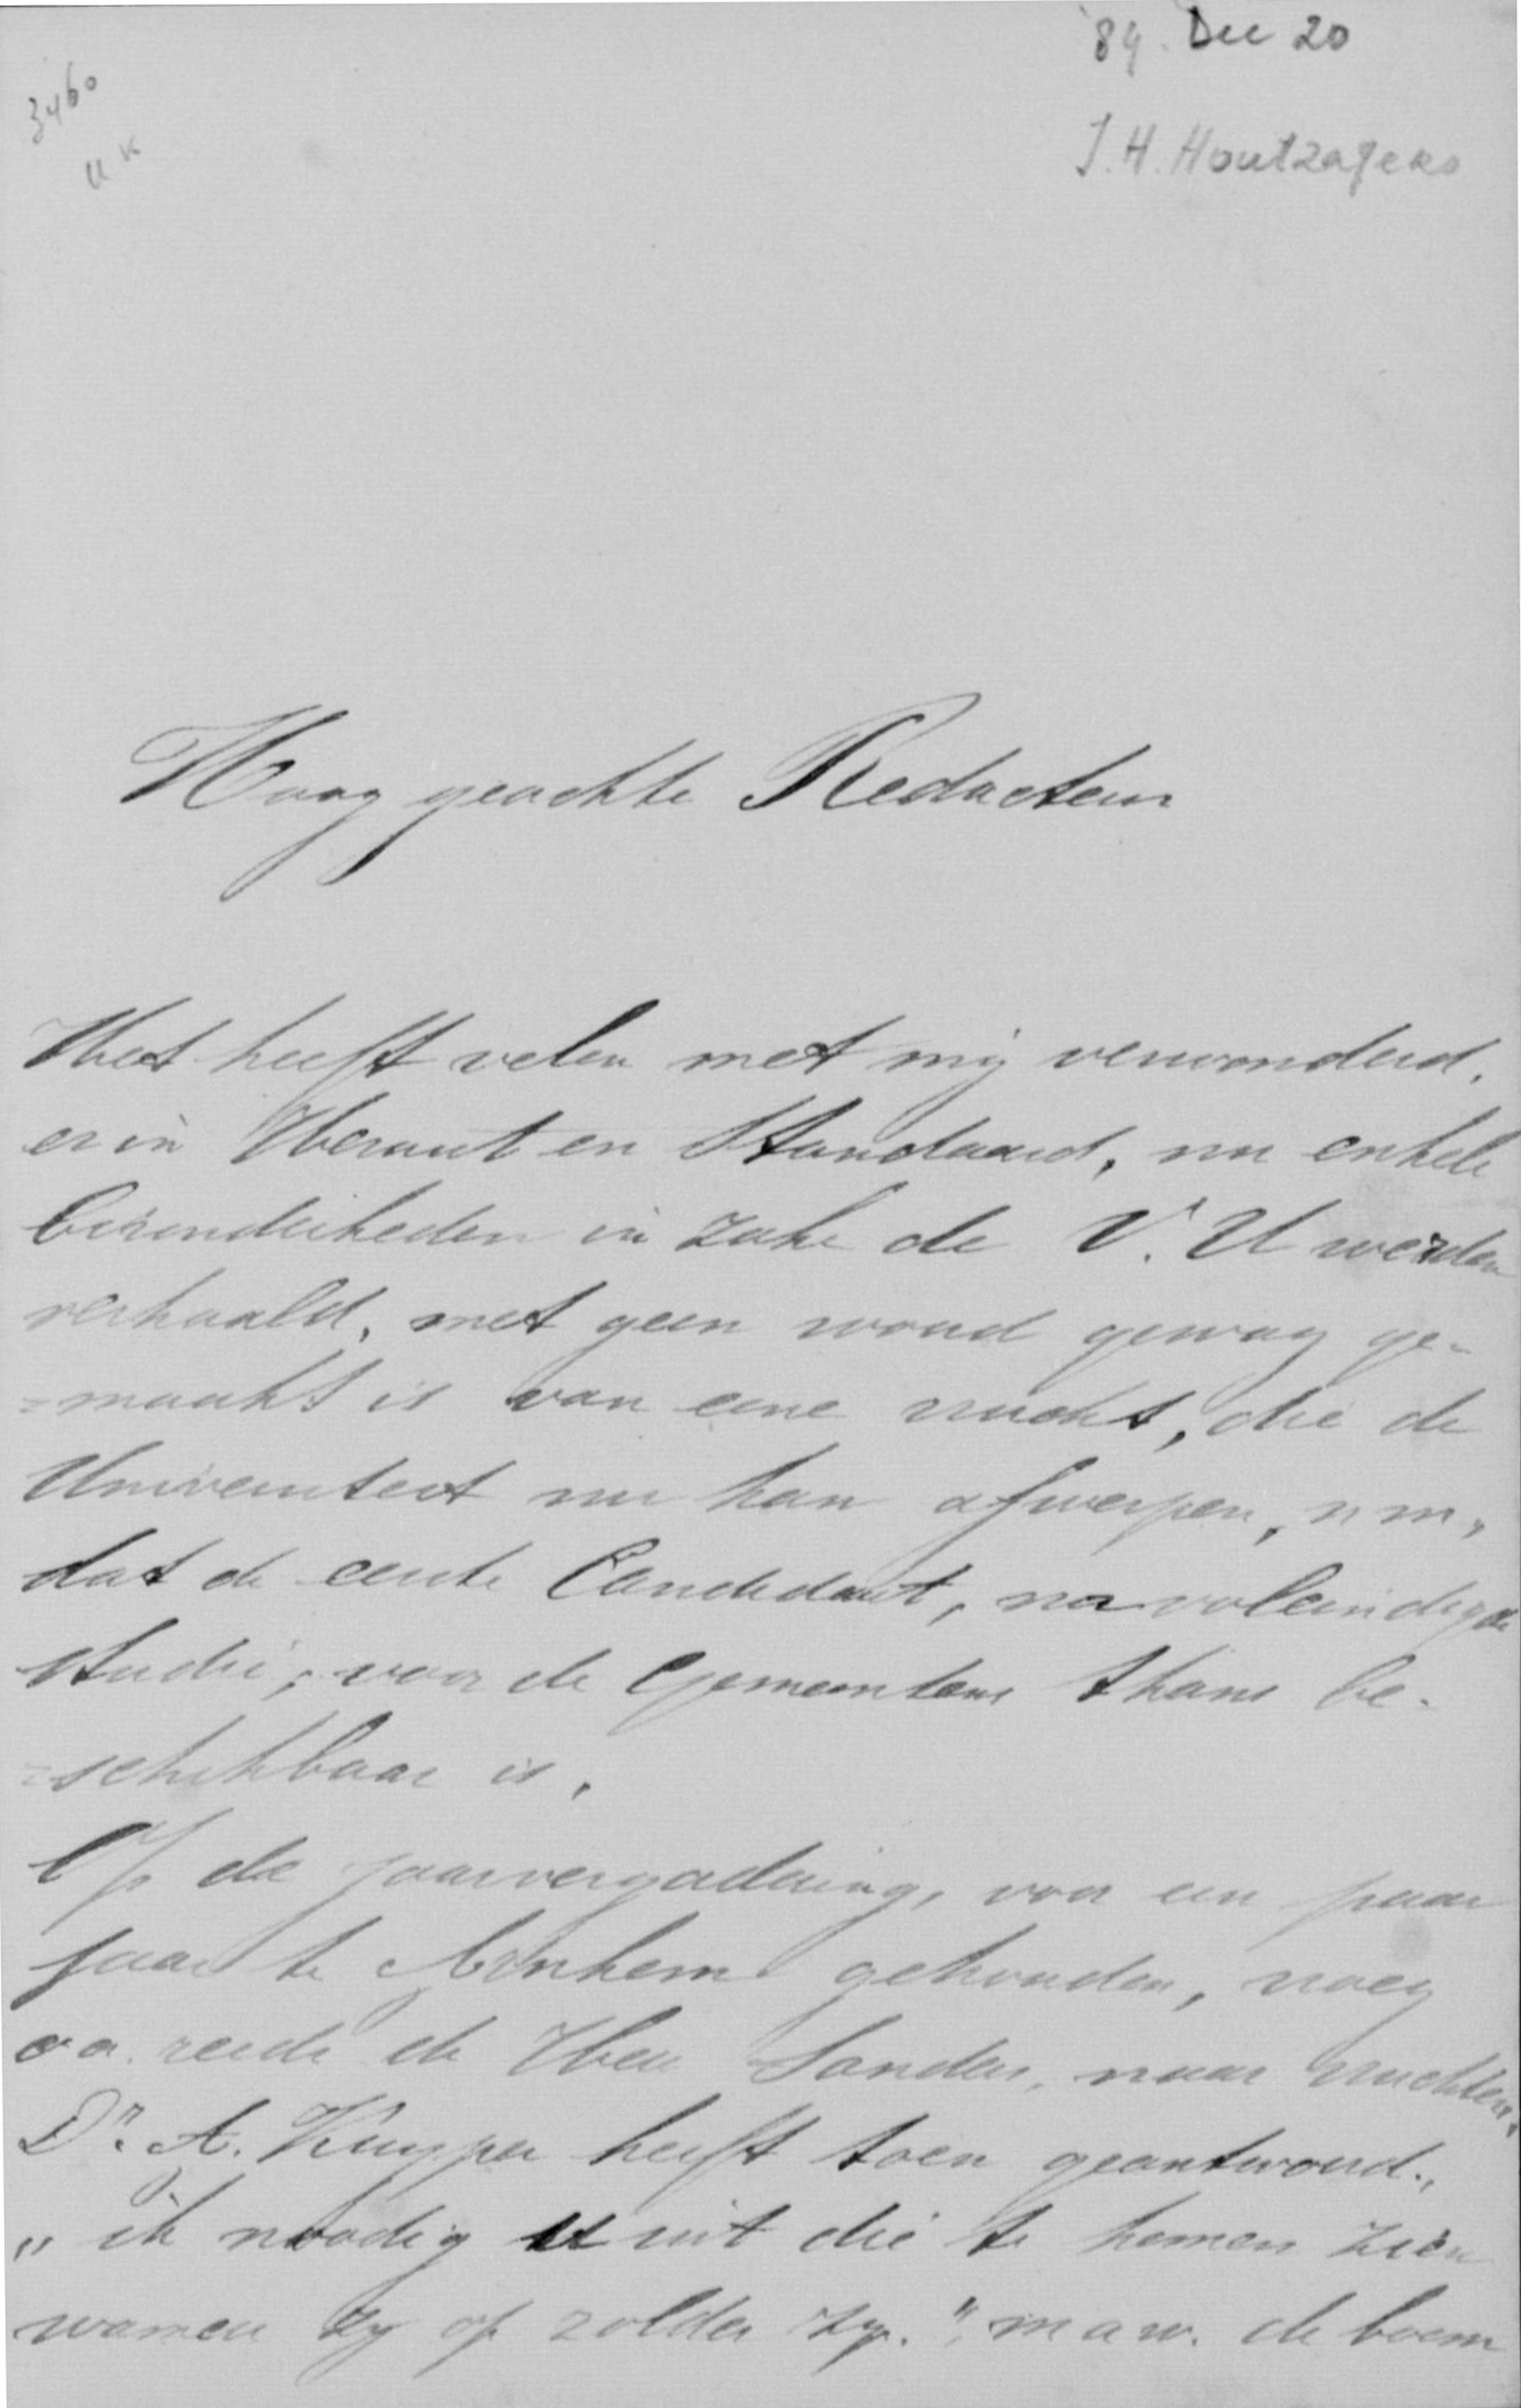 '89. Dec 20
3460
U K
J. H. Houtzagers
Hoog geachte Redacteur
Het heeft velen met mij verwonderd,
er in Heraut en Standaard, nu enkele
bizonderheden in zake de V. U werden
verhaald, met geen woord gewag ge-
=maakt is van eene vrucht, die de
Universiteit nu kan afwerpen, n m,
dat de eerste Candidaat, na voleindigde
studie, voor de Gemeenten thans be-
=schikbaar is.
Op de jaarvergadering, voor een paar
jaar te Arnhem gehouden, vroeg
o a. reeds de Heer Sanders, naar vruchten.
Dr. A. Kuyper heeft toen geantwoord.,
„ik noodig U uit die te komen zien
wanneer zy op zolder zyn." m a w. de boom